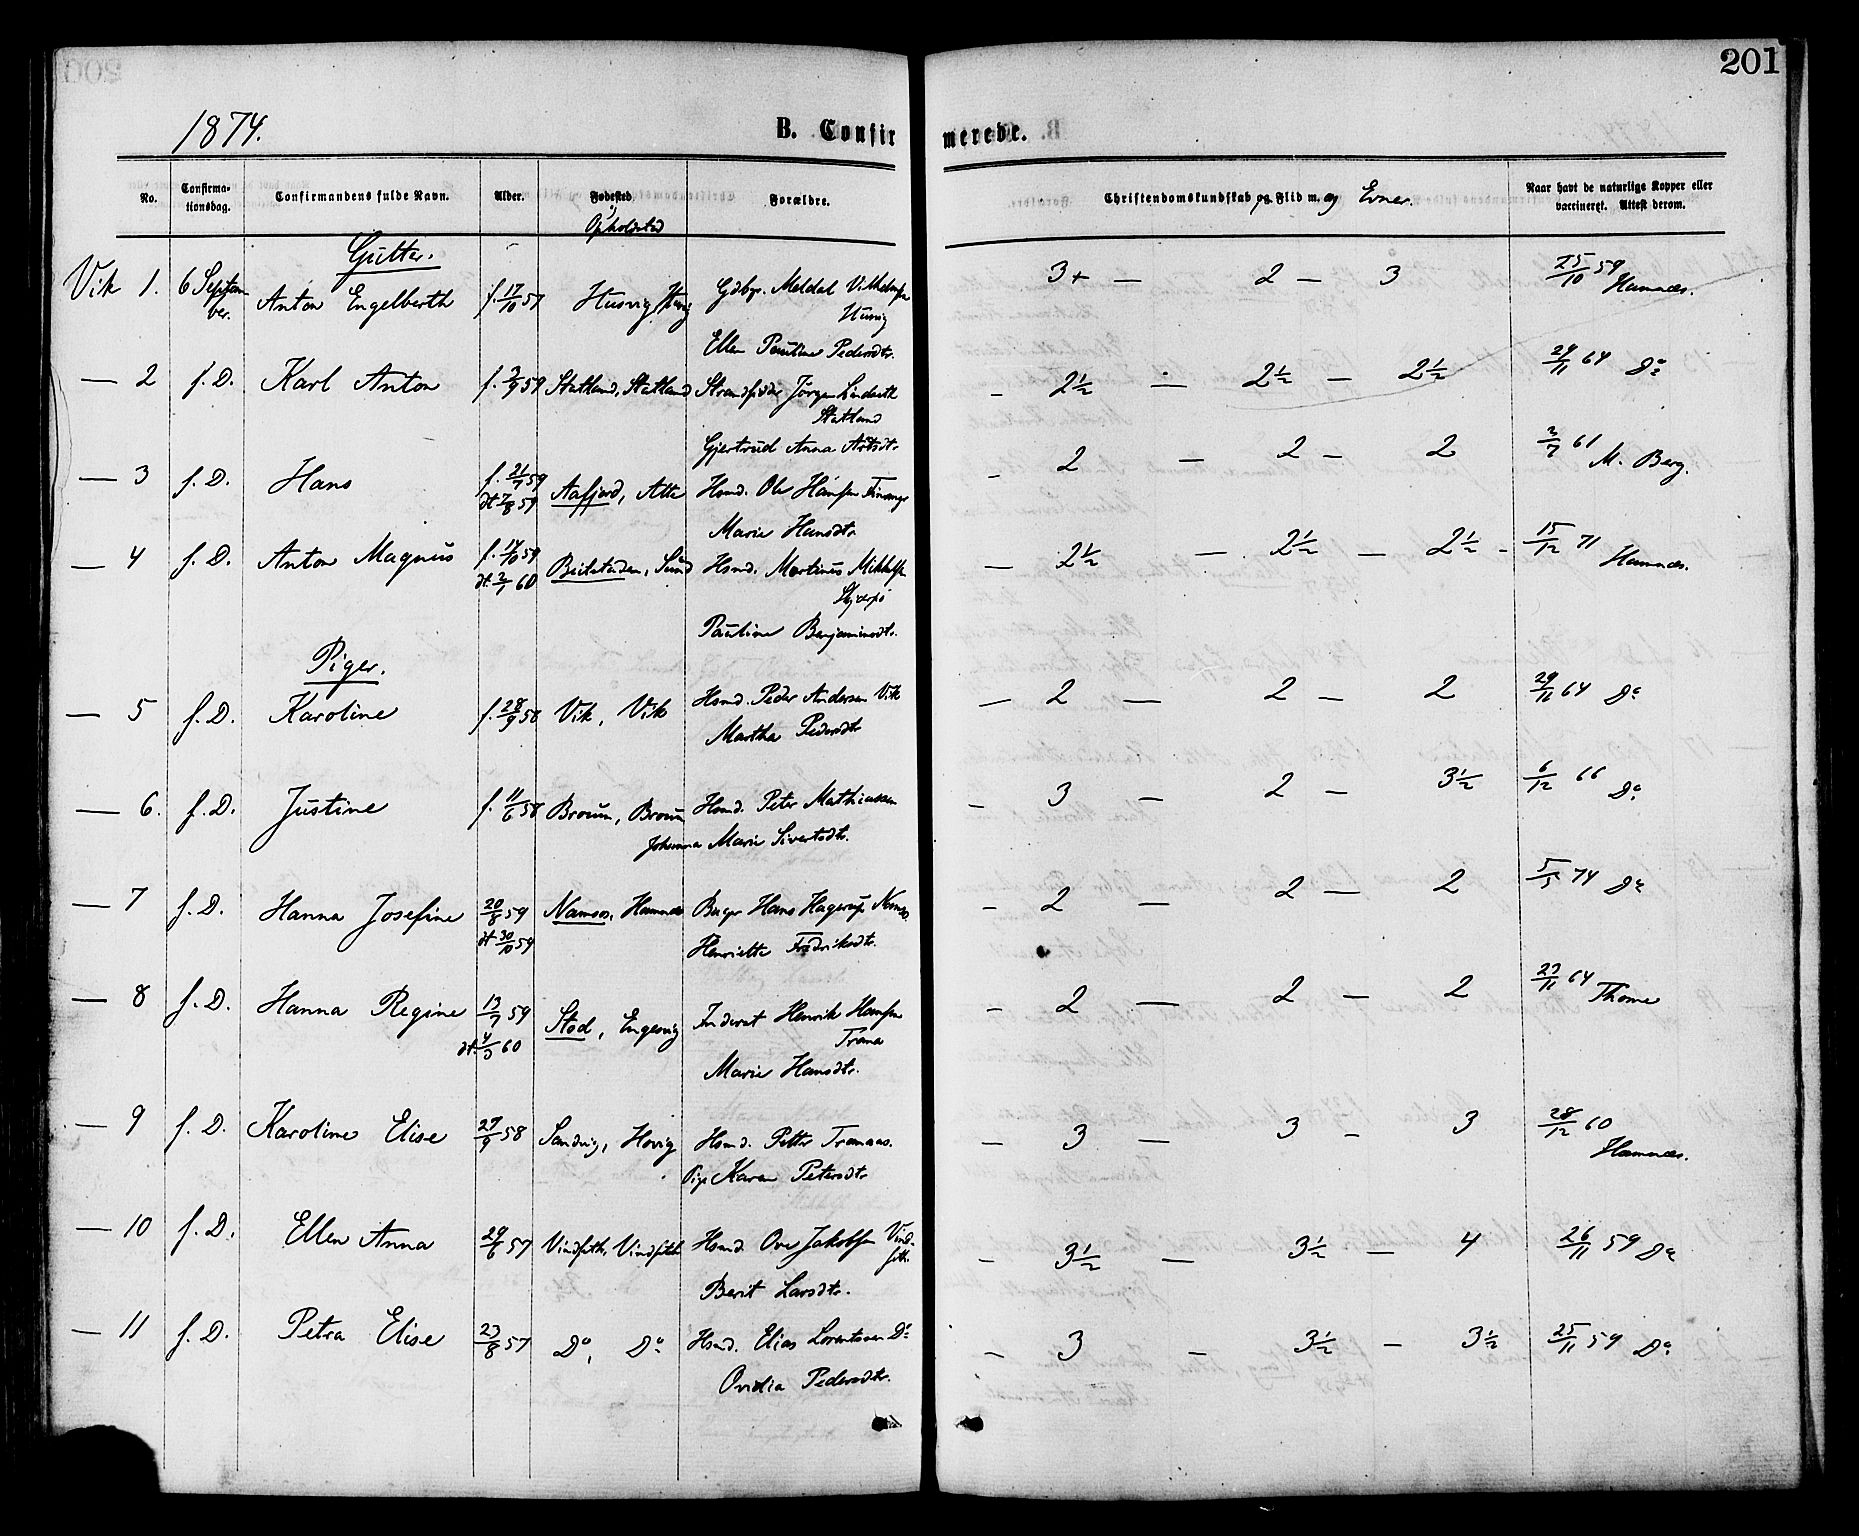 201
1874.
B. Confirmerede.
No. Confirmationsdag. Confirmandens fulde Navn. Alder. Fødested / Opholdsted Forældre. Christendomskundskab og Flid m. og Evner. Naar havt de naturlige Kopper eller vaccineret. Attest derom.
Gutter.
Vik 1. 6 September. Anton Engelberth f. 17/10 57 Husvig, Gdbgr. Meldal Vilhelmsen Husvig 3+ — 2 — 3 25/10 59 Hamnæs.
Ellen Pauline Pedersdtr.
— 2 f. D. Karl Anton f. 3/9 59 Statland, Statland Strandsidder Jørgen Linderth Statland — 2½ — 2½ — 2½ 29/11 64 Do
Gjertrud Anna
— 3 f. D. Hans f. 21/7 59 dt 7/8 59 Aafjord, Hsmd. Ole Hansen — 2 — 2 — 2 3/7 61 M. Berg.
Marie Hansdtr.
— 4 f. D. Anton Magnus f. 14/10 59 dt. 2/7 60 Beitstaden, Sund Hsmd. Martinus Mikkelsen — 2½ — 2½ — 2½ - 15/12 71 Hamnæs.
Pauline Benjaminsdtr.
Piger.
— 5 f. D. Karoline f. 28/9 58 Vik, Vik Hsmd. Peder Andersen Vik — 2 — 2 — 2 29/11 64 Do
Martha Pedersdtr
— 6. f. D. Justine f. 11/6 58 Brouin, Brouin Hsmd. Peter Mathiassen — 3 — 2 — 3½ 6/12 66 Do.
Johanna Marie Sivertsdtr.
— 7 f. D. Hanna Josefine 20/8 59 dt 30/10 59 Namsos, Hamnæs Hans Hagerup Namsos. — 2 — 2 — 2 5/5 74 Do
Henriette Fredriksdtr.
— 8 f. D. Hanna Regine 13/7 59 dt. 4/3 60 Stod, Engesvig Inderst Henrik Hansen Trana — 2 — 2 — 2 23/11 64 Thome
Marie Hansdtr.
— 9 f. D. Karoline Elise 27/9 58 Sandvig, Hovig Hsmd. Petter Tranaas. — 3 — 3 — 3 28/12 60 Hamnæs.
Pige Karen Petersdtr
— 10 f. D. Ellen Anna 29/6 57 Vindseth, Vindseth Hsmd. Ove Jakobsen Vindseth. — 3½ — 3½ — 4 26/11 59 Do
Berit Larsdtr.
— 11 f. D. Petra Elise 23/8 57 Do, Do Hsmd. Elias Lorentsen Do — 3 — 3½ — 3½ 25/11 59 Do.
Ovidia Pedersdtr.